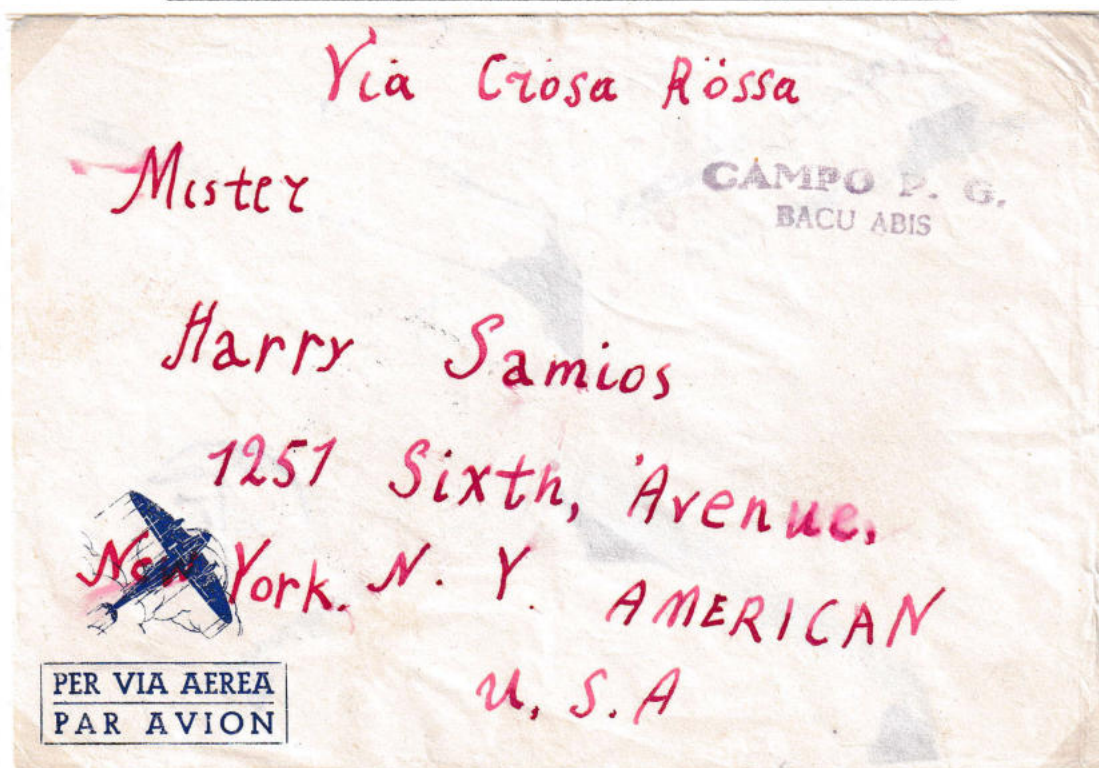 Via Crosa Rössa
Mister
CAMPO P. G.
BACU ABIS
Harry Samios
1251 Sixth, Avenue,
New York. N. Y. AMERICAN
U, S. A
PER VIA AEREA
PAR AVION